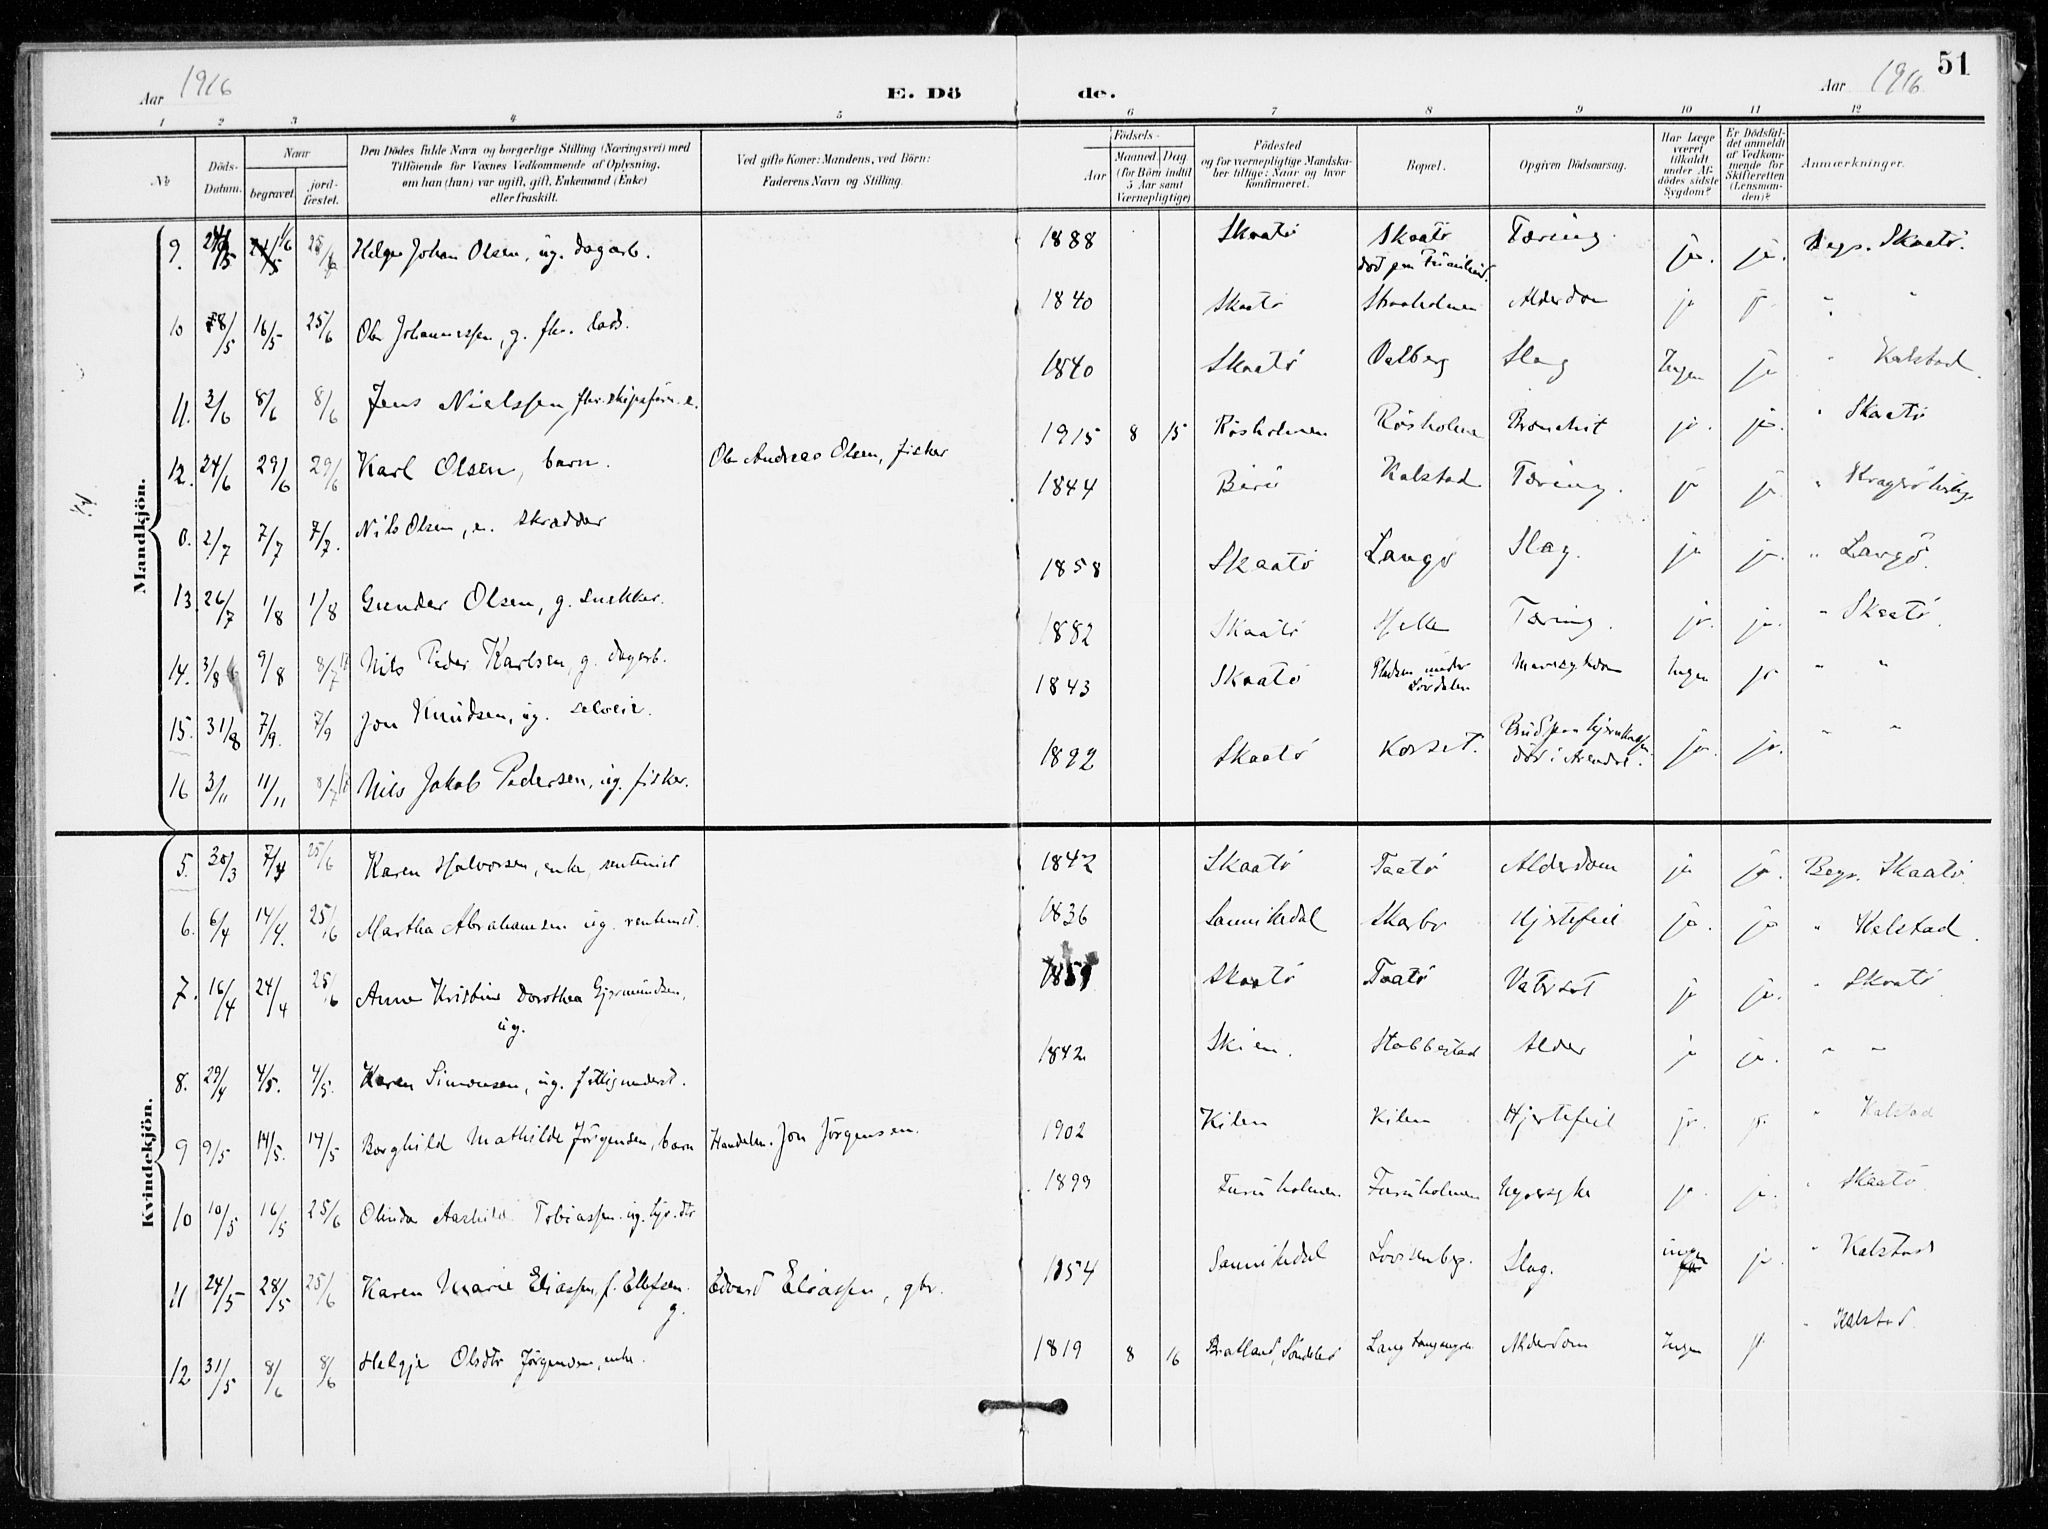 51
Aar 1916 E. Dö de. Aar 1916
1 2 3 4 5 6 7 8 9 10 11 12
No
Döds-Datum.
Naar
begravet.
jord-fæstet.
Den Dödes fulde Navn og borgerlige Stilling (Næringsvei) med
Tilföiende for Voxnes Vedkommende af Oplysning,
om han (hun) var ugift, gift, Enkemand (Enke)
eller fraskilt.
Ved gifte Koner: Mandens, ved Börn:
Faderens Navn og Stilling.
Födsels-
Aar
Maaned. Dag.
(for Börn indtil
5 Aar samt
Værnepligtige)
Födested
og for værnepligtige Mandska-
ber tillige: Naar og hvor
konfirmeret.
Bopæl.
Opgiven Dödsaarsag.
Har Læge
været
tilkaldt
under Af-
dödes sidste
Sygdom?
Er Dödsfal-
det anmeldt
af Vedkom-
mende for
Skifteretten
(Lensman-
den)?
Anmærkninger.
Mandkjön.
9. 24/5 1/6 25/6 Helge Johan Olsen, ug. dagarb. 1888 Skaatö Skaatö Tæring. ja. ja. Begr. Skaatö.
10 8/5 16/5 25/6 Ole Johannessen, g. fhv. lods. 1840 Skaatö Straaholmen Alderdom ja ja " "
11. 3/6 8/6 8/6 Jens Nielssen, fhv. skipsförer. e. 1840 Skaatö Valberg Slag Ingen ja " Kalstad.
12. 24/6 29/6 29/6 Karl Olsen, barn. Ole Andreas Olsen, fisker 1915 8 15 Rösholmen Rösholmen Bronchit ja. ja. " Skaatö
0. 2/7 7/7 7/7. Nils Olsen, e. skrædder 1844 Berö Kalstad Tæring. ja ja. " Kragerö
13. 26/7 1/8 1/8 Gunder Olsen, g. snekker. 1858 Skaatö Langö Slag. ja ja. " Langö.
14. 3/8 9/8 Nils Peder Karlsen, g. dagarb. 1882 Skaatö Helle Tæring. ja. ja. " Skaatö.
15. 31/8 7/9. 7/9 Jon Knudsen, ug. selveier. 1843 Skaatö Pladsen under Lövdalen Ingen ja " "
16 3/11 11/11 Nils Jakob Pedersen, ug. fisker. 1892 Skaatö Korset. död i Arendal. ja. ja. " "
Kvindekjön.
5. 30/3 7/4 25/6 Karen Halvorsen, enke, rentenist 1842 Skaatö Taatö Alderdom ja ja. Begr. Skaatö.
6. 6/4 14/4. 25/6 Martha Abrahamsen ug. rentenist. 1836 Sannikedal Skarbo Hjertefeil ja. ja " Kalstad.
7. 16/4 24/4 25/6 Anne Kristine Dorothea Gjermundsen,
ug. 1859 Skaatö Taatö Vatersot ja ja. " Skaatö
8. 29/4 4/5. 4/5. Karen Simonsen, ug. fattigunderst. 1842. Skien. Stabbestad Alder ja ja. " "
9 9/5 14/5. 14/5 Borghild Mathilde Jörgensen, barn Handelsm. Jon Jörgensen. 1902 Kilen Kilen Hjertefeil ja. ja. " Kalstad
10 10/5 16/5 25/6 Olinda Aashild Tobiassen. ug. 1899 Furuholmen. Furuholmen Nyresyke ja. ja. " Skaatö
11 24/5 28/5 25/6 Karen Marie Eliassen, f. Ellefsen.
g. Edvard Eliassen, gbr. 1854 Sannikedal Lovisenberg. Slag. ingen ja. " Kalstad
12 31/5 8/6 8/6 Helgje Olsdtr Jörgensen, enke. 1819 8 16 Bratland, Söndeled Alderdom Ingen ja " Kalstad.